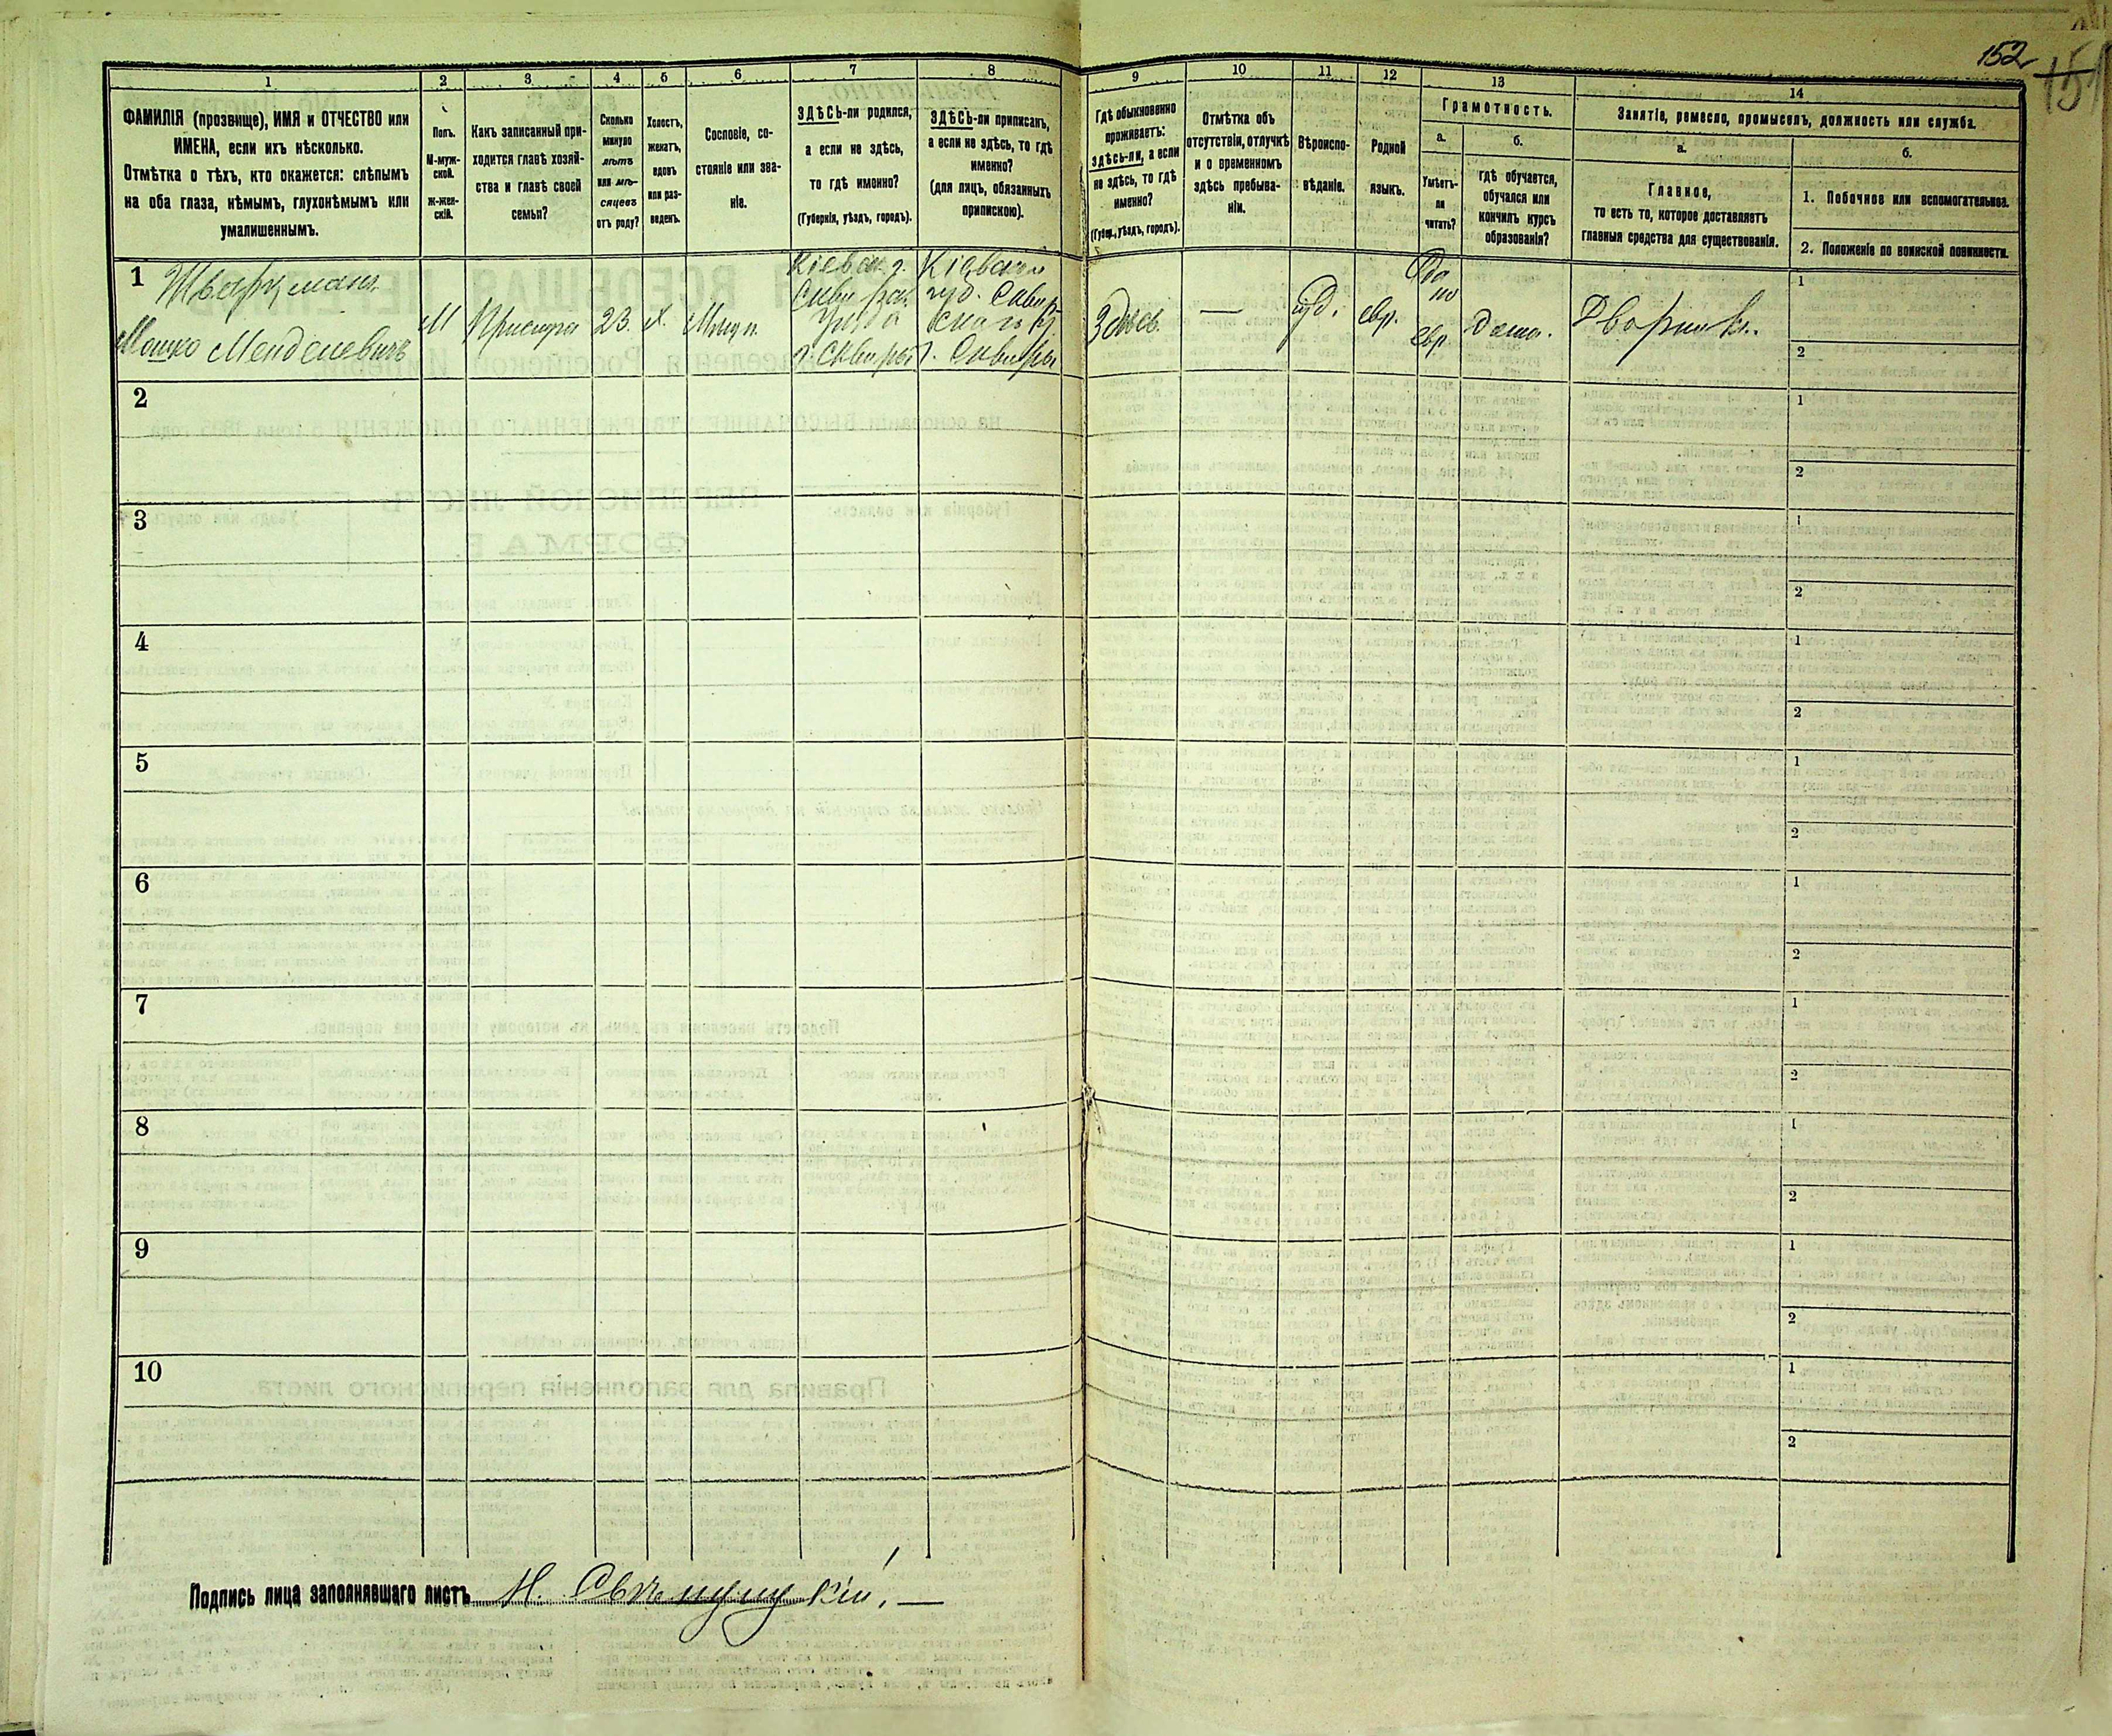 152
151
1
2
3
4
5
6
7
8
9
10
11
12
13
14
ФАМИЛІЯ (прозвище), ИМЯ и ОТЧЕСТВО или
ИМЕНА, если ихъ нѣсколько.
Отмѣтка о тѣхъ, кто окажется: слѣпымъ
на оба глаза, нѣмымъ, глухонѣмымъ или
умалишеннымъ.
Полъ.
М-муж-
ской.
ж-жен-
скій.
Какъ записанный при-
ходится главѣ хозяй-
ства и главѣ своей
семьи?
Сколько
минуло
лѣтъ
или мѣ-
сяцевъ
отъ роду?
Холостъ,
женатъ,
вдовъ
или раз-
веденъ.
Сословіе, со-
стояніе или зва-
ніе.
ЗДѢСЬ-ли родился,
а если не здѣсь,
то гдѣ именно?
(Губернія, уѣздъ, городъ).
ЗДѢСЬ-ли приписанъ,
а если не здѣсь, то гдѣ
именно?
(для лицъ, обязанныхъ
припискою).
Гдѣ обыкновенно
проживаетъ:
здѣсь-ли, а если
не здѣсь, то гдѣ
именно?
(Губер., уѣздъ, городъ).
Отмѣтка объ
отсутствіи, отлучкѣ
и о временномъ
здѣсь пребыва-
ніи.
Вѣроиспо-
вѣданіе.
Родной
языкъ.
Грамотность.
а.
Умѣетъ-
ли
читать?
б.
гдѣ обучается,
обучался или
кончилъ курсъ
образованія?
Занятіе, ремесло, промыселъ, должность или служба.
а.
Главное,
то есть то, которое доставляетъ
главныя средства для существованія.
б.
1. Побочное или вспомогательное.
2. Положеніе по воинской повинности.
1
Мошко Менделевичъ
М
Прислуга
23.
х.
Мѣщ.
Кіевск. г.
Сквир.
уѣзда
г. Сквиры
Кіевской
губ. Сквир
скаго у.
г. Сквиры
Здѣсь.
—
іуд.
евр.
Да
по
евр
дома.
Дворникъ.
1
2
2
1
2
3
1
2
4
1
2
5
1
2
6
1
2
7
1
2
8
1
2
9
1
2
10
1
2
Подпись лица заполнявшаго листъ